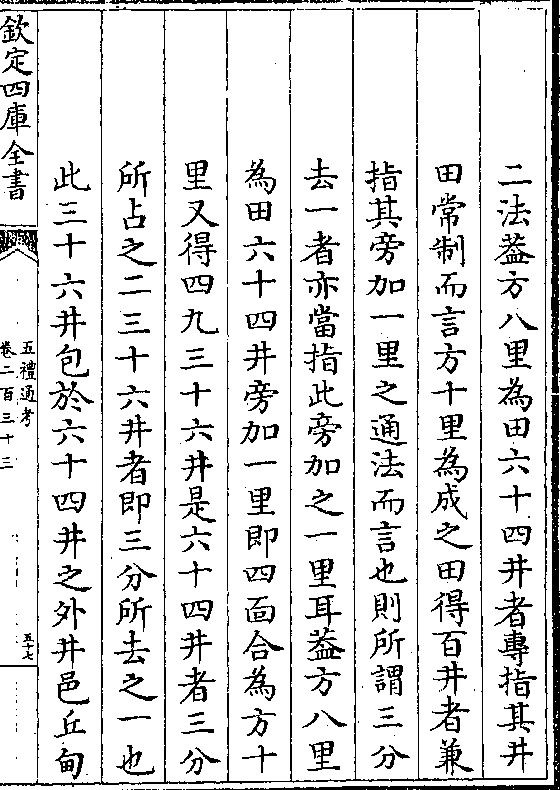 二法葢方八里為田六十四井者專指其井
田常制而言方十里為成之田得百井者兼
指其旁加一里之通法而言也則所謂三分
去一者亦當指此旁加之一里耳葢方八里
為田六十四井旁加一里即四面合為方十
里又得四九三十六井是六十四井者三分
所占之二三十六井者即三分所去之一也
此三十六井包於六十四井之外井邑丘甸
欽定四庫全書
五禮通考
卷二百三十三
五十七